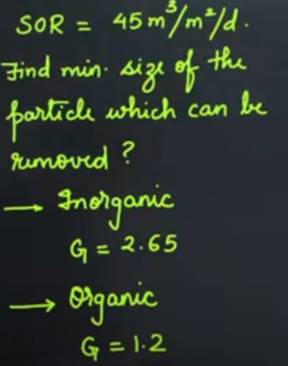 SOR = 45 m³/m²/d.
Find min. size of the
particle which can be
removed ?
→ Inorganic
G = 2.65
→ Organic
G = 1.2